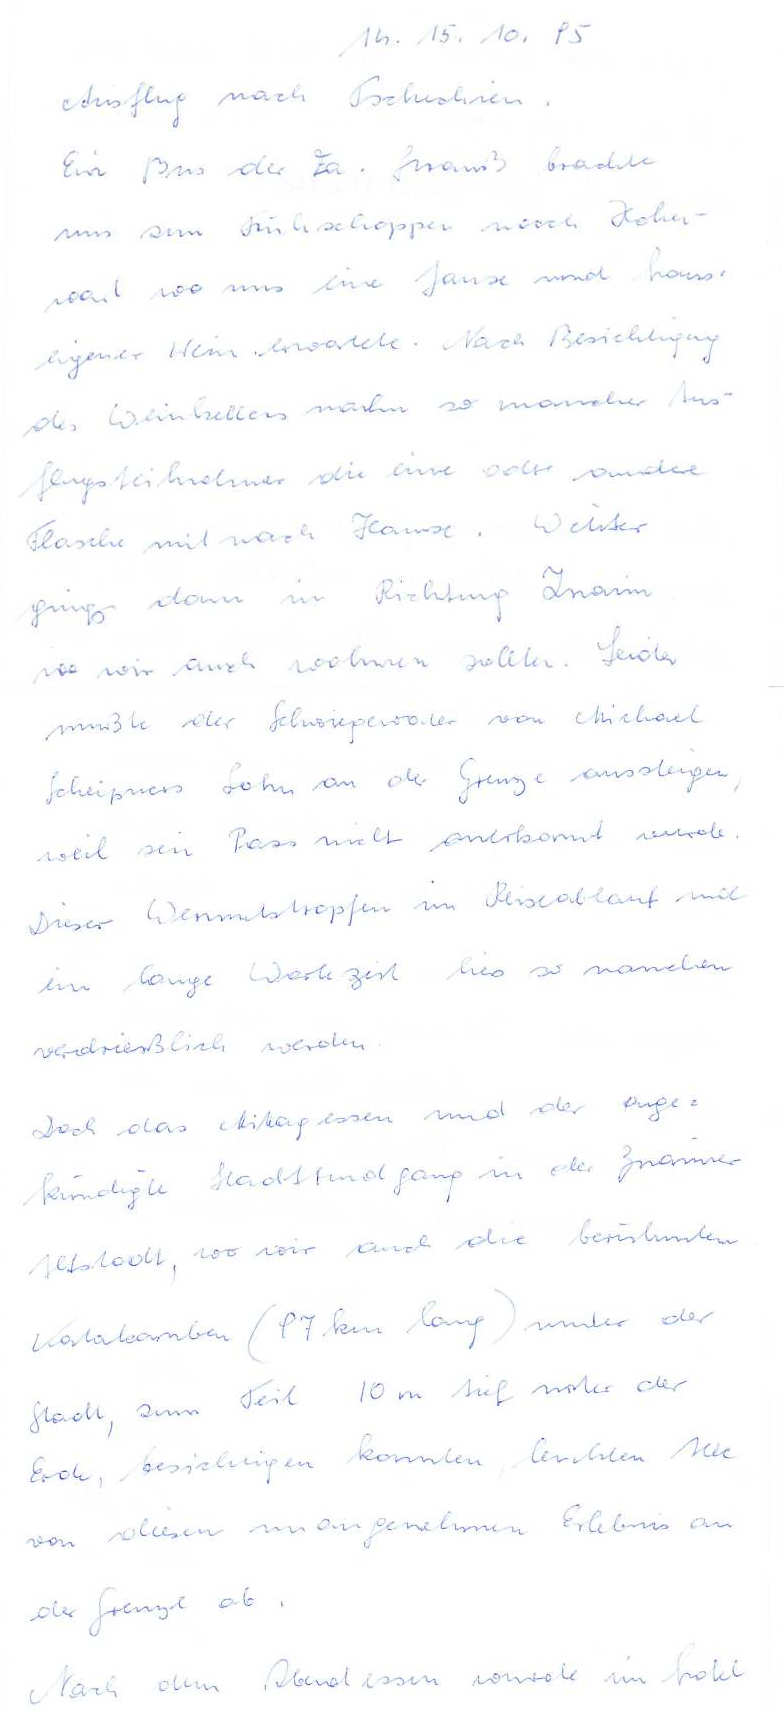 14. 15. 10. 95
Ausflug nach Tschechien.
Ein Bus der Fa. brachte
uns zum Frühschoppen nach Hoher-
wo uns eine Jause und haus-
eigener Wein erwartete. Nach Besichtigung
des Weinkellers nahm so mancher Aus-
flugsteilnehmer die eine oder andere
Flasche mit nach Hause. Weiter
gings dann in Richtung Znaim
wo wir auch wohnen sollten. Leider
mußte der Schwiegervater von Michael
Scheipners Sohn an der Grenze aussteigen,
weil sein Pass nicht anerkannt wurde.
Dieser Wermutstropfen im Reiseablauf und
ein lange Wartezeit lies so manchen
verdrießlich werden.
Doch das Mittagessen und der ange=
kündigte Stadtrundgang in der Znaimer
Altstadt, wo wir auch die berühmten
Katakomben (97 km lang) unter der
Stadt, zum Teil 10 m tief unter der
Erde, besichtigen konnten, lenkten alle
von diesen unangenehmen Erlebnis an
der Grenze ab.
Nach dem Abendessen wurde im Hotel